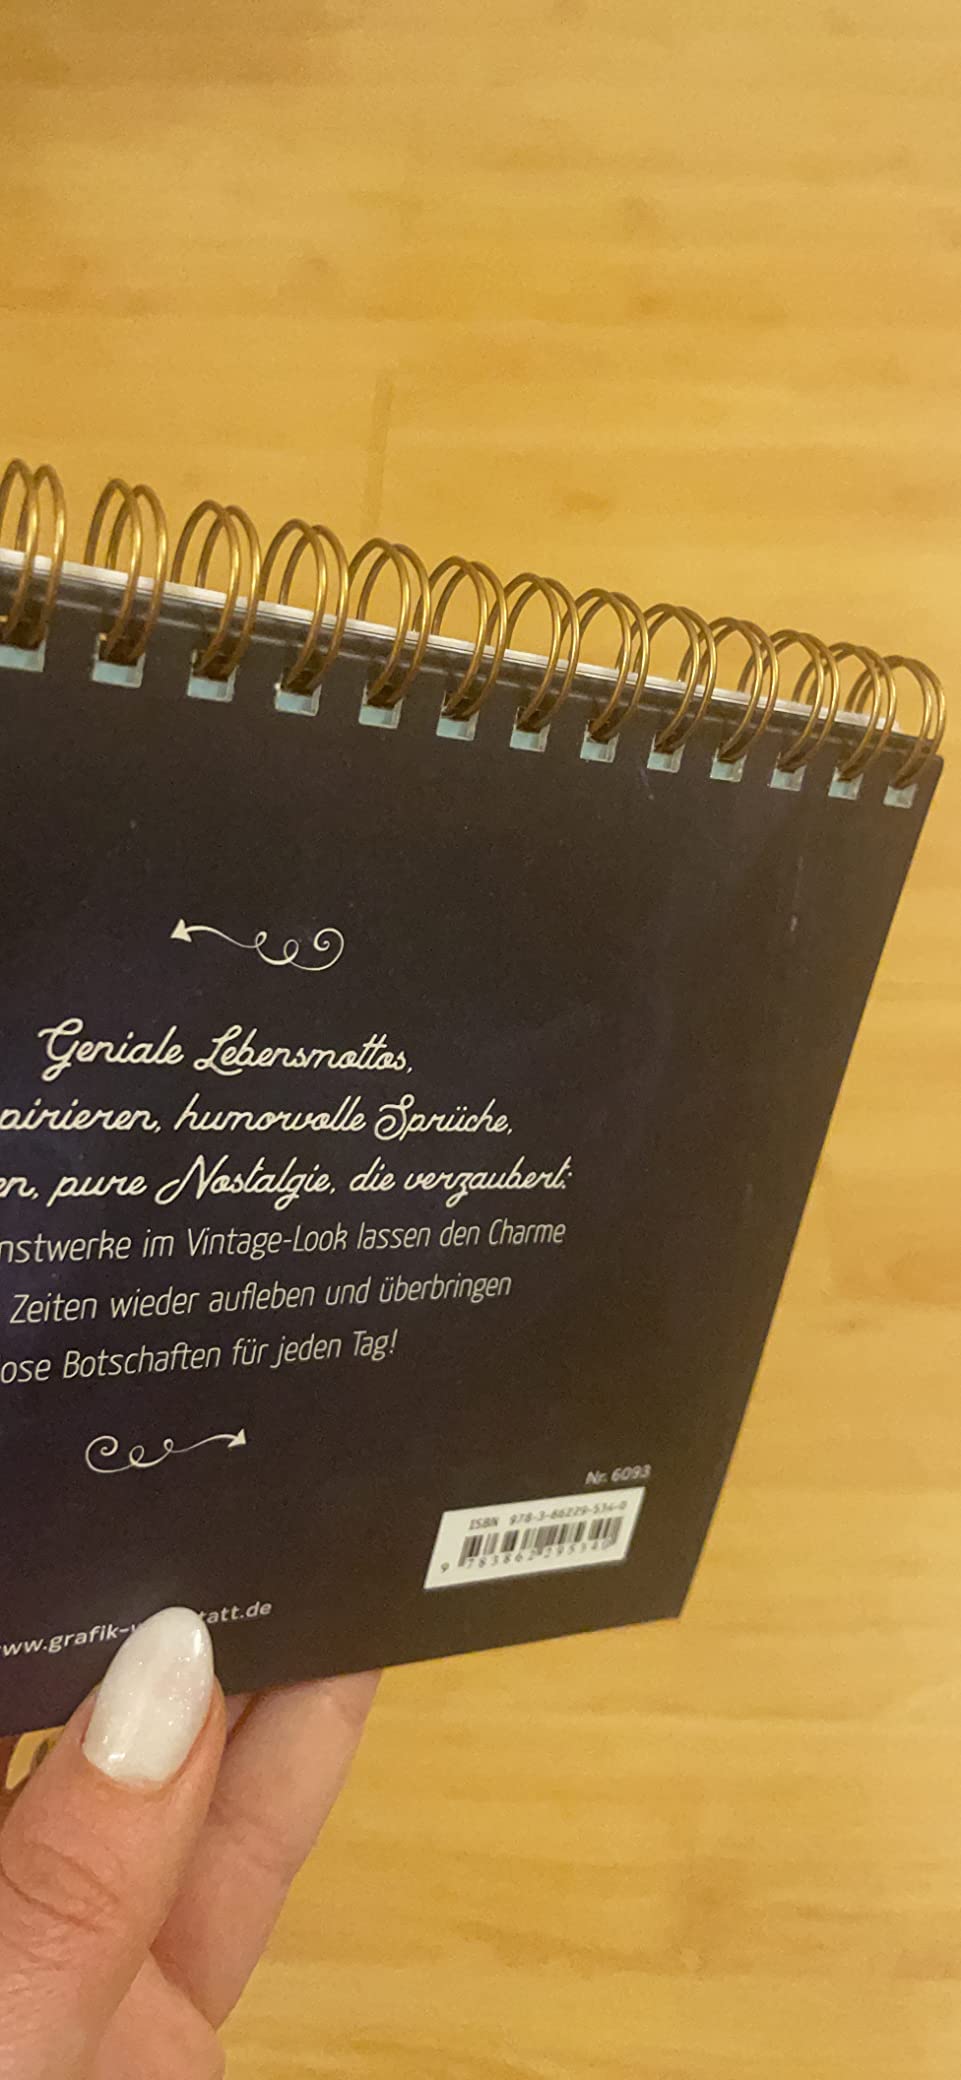 Geniale Lebensmottos,
humorvolle Sprüche,
pure Nostalgie, die verzaubert:
im Vintage-Look lassen den Charme
Zeiten wieder aufleben und überbringen
Botschaften für jeden Tag!
Nr. 6093
ISBN 978-3-86229-534-0
9 783862 295340